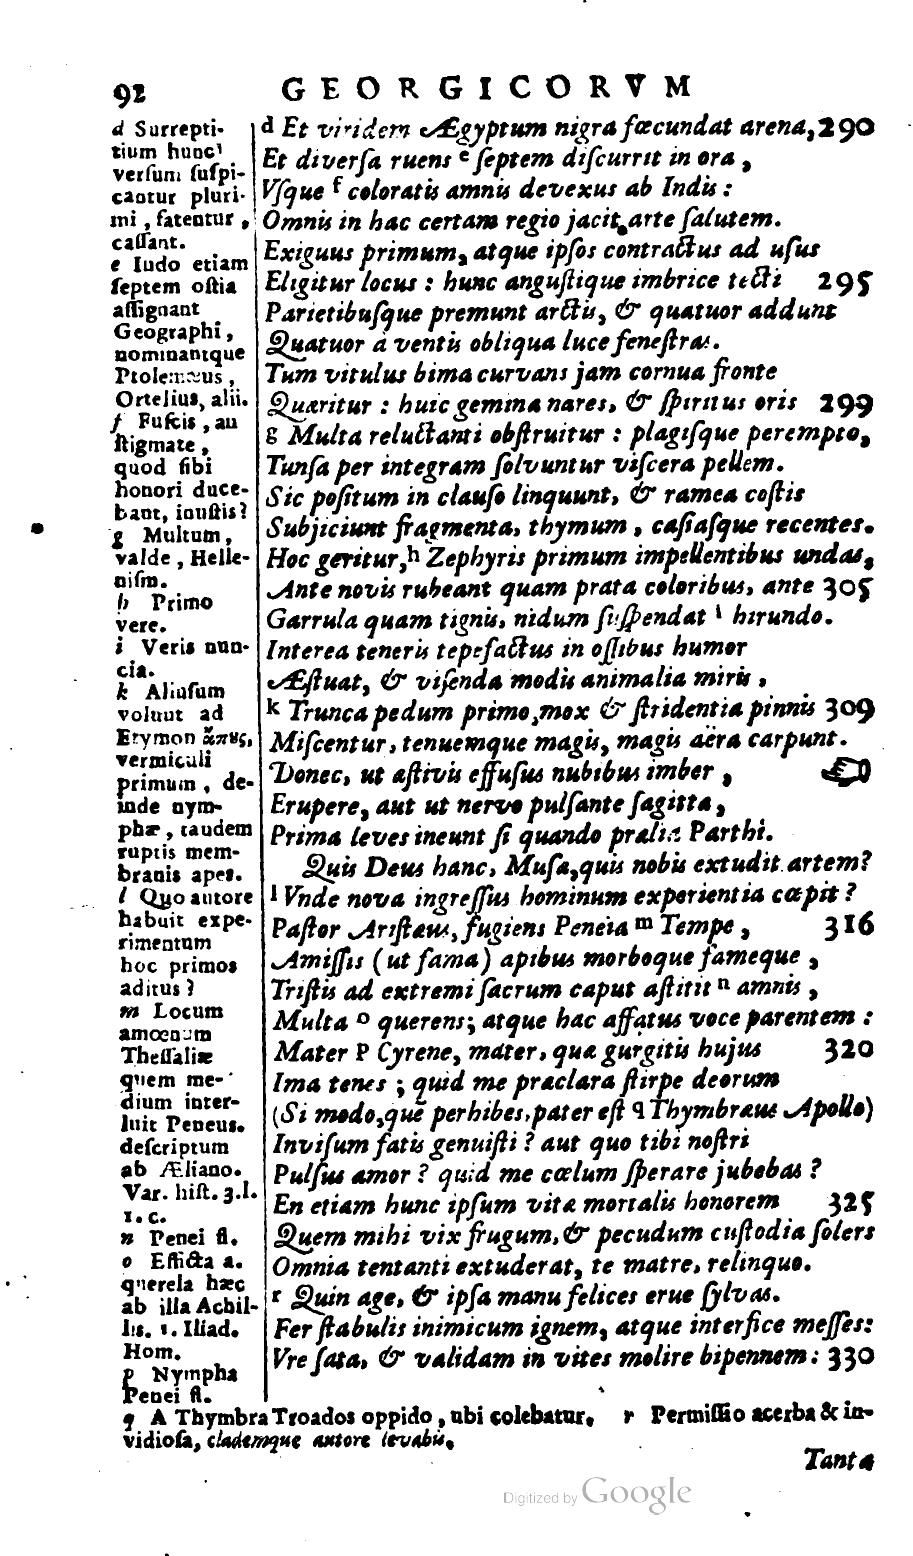 92 GEORGICORVM
d Et viridem Ægyptum nigra fœcundat arena, 290
Et diverſa ruens e ſeptem diſcurrit in ora,
Vſque f coloratis amnis devexus ab Indis:
Omnis in hac certam regio jacit arte ſalutem.
Exiguus primum, atque ipſos contractus ad uſus
Eligitur locus: hunc anguſtique imbrice tecti 295
Parietibuſque premunt arctis, & quatuor addunt
Quatuor à ventis obliqua luce feneſtras.
Tum vitulus bima curvans jam cornua fronte
Quæritur: huic geminæ nares, & ſpiritus oris 299
g Multa reluctanti obſtruitur: plagiſque perempto,
Tunſa per integram ſolvuntur viſcera pellem.
Sic poſitum in clauſo linquunt, & ramea coſtis
Subjiciunt fragmenta, thymum, caſiaſque recentes.
Hoc geritur, h Zephyris primum impellentibus undas,
Ante novis rubeant quam prata coloribus, ante 305
Garrula quam tignis, nidum ſuſpendat i hirundo.
Interea teneris tepefactus in oſſibus humor
Æſtuat, & viſenda modis animalia miris,
k Trunca pedum primo, mox & ſtridentia pinnis 309
Miſcentur, tenuemque magis, magis aëra carpunt.
Donec, ut æſtivis effuſus nubibus imber,
Erupere, aut ut nervo pulſante ſagittæ,
Prima leves ineunt ſi quando prælia Parthi.
Quis Deus hanc, Muſæ, quis nobis extudit artem?
l Vnde nova ingreſſus hominum experientia cœpit?
Paſtor Ariſtæus, fugiens Peneia m Tempe, 316
Amiſſis (ut fama) apibus morboque fameque,
Triſtis ad extremi ſacrum caput aſtitit n amnis,
Multa o querens; atque hac affatus voce parentem:
Mater p Cyrene, mater, quæ gurgitis hujus 320
Ima tenes; quid me præclara ſtirpe deorum
(Si modo, quē perhibes, pater eſt q Thymbræus Apollo)
Inviſum fatis genuiſti? aut quo tibi noſtri
Pulſus amor? quid me cœlum ſperare jubebas?
En etiam hunc ipſum vitæ mortalis honorem 325
Quem mihi vix frugum, & pecudum cuſtodia ſolers
Omnia tentanti extuderat, te matre, relinquo.
r Quin age, & ipſa manu felices erue ſylvas.
Fer ſtabulis inimicum ignem, atque interfice meſſes:
Vre ſata, & validam in vites molire bipennem: 330
d Surrepti-
tium hunc
verſum ſuſpi-
cantur pluri-
mi, fatentur,
caſſant.
e Iudo etiam
ſeptem oſtia
aſſignant
Geographi,
nominantque
Ptolemæus,
Ortelius, alii.
f Fuſcis, an
ſtigmate,
quod ſibi
honori duce-
bant, inuſtis?
g Multum,
valde, Helle-
niſm.
h Primo
vere.
i Veris nun-
cia.
k Aliuſum
volunt ad
Etymon ἄπυς,
vermiculi
primum, de-
inde nym-
phæ, taudem
ruptis mem-
branis apes.
l Quo autore
habuit expe-
rimentum
hoc primos
aditus?
m Locum
amœnum
Theſſaliæ
quem me-
dium inter-
luit Peneus.
deſcriptum
ab Æliano.
Var. hiſt. 3. l.
1. c.
n Penei fl.
o Efficta a.
querela hæc
ab illa Achil-
lis. 1. Iliad.
Hom.
p Nympha
Penei fl.
q A Thymbra Troados oppido, ubi colebatur. r Permiſſio acerba & in-
vidioſa, clademque autore levabis.
Tanta
Digitized by Google